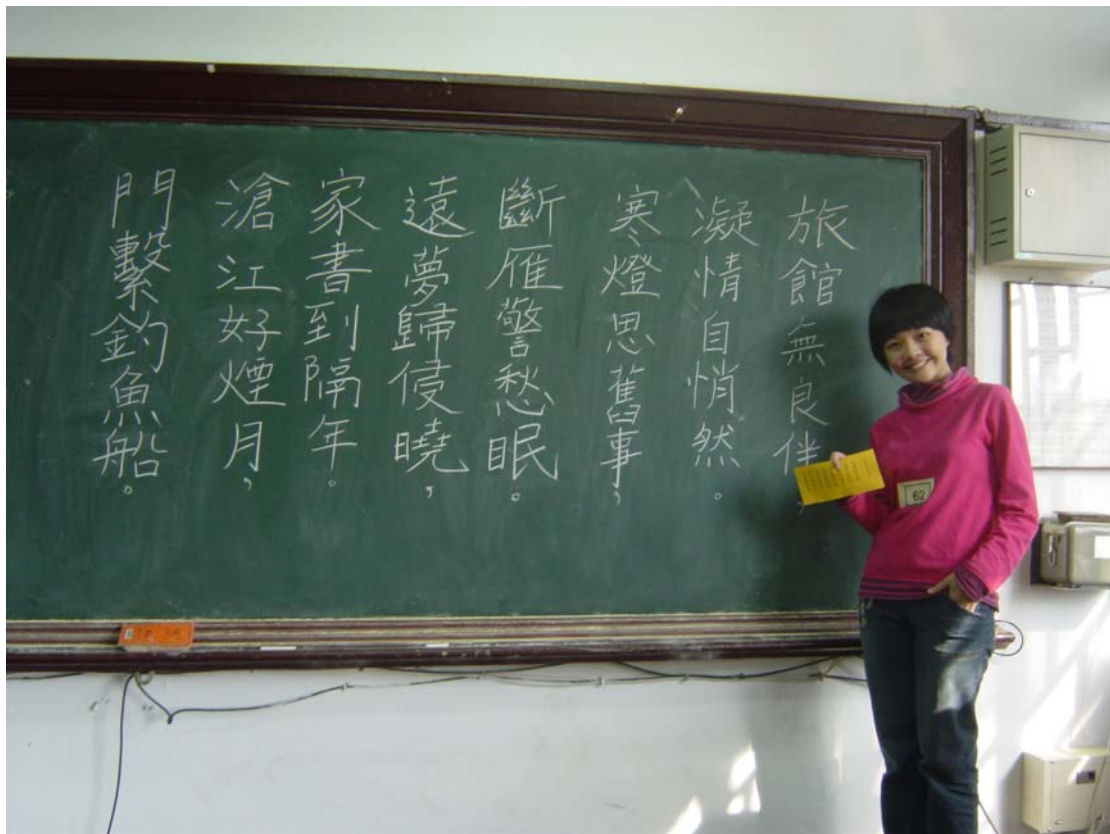 旅館無良伴，
凝情自悄然。
寒燈思舊事，
斷雁警愁眠。
遠夢歸侵曉，
家書到隔年。
滄江好煙月，
門繫釣魚船。
62